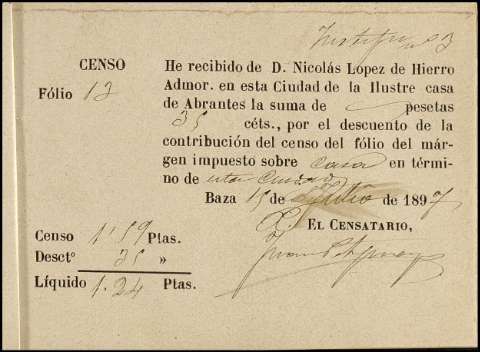 CENSO
Fólio 13
He recibido de D. Nicolás López de Hierro
Admor. en esta Ciudad de la Ilustre casa
de Abrantes la suma de pesetas
35 céts., por el descuento de la
contribución del censo del fólio del már-
gen impuesto sobre casa en térmi-
no de esta Ciudad
Baza 15 de Julio de 189
EL CENSATARIO,
Censo 1'59 Ptas.
Desctº 35 »
Líquido 1.24 Ptas.